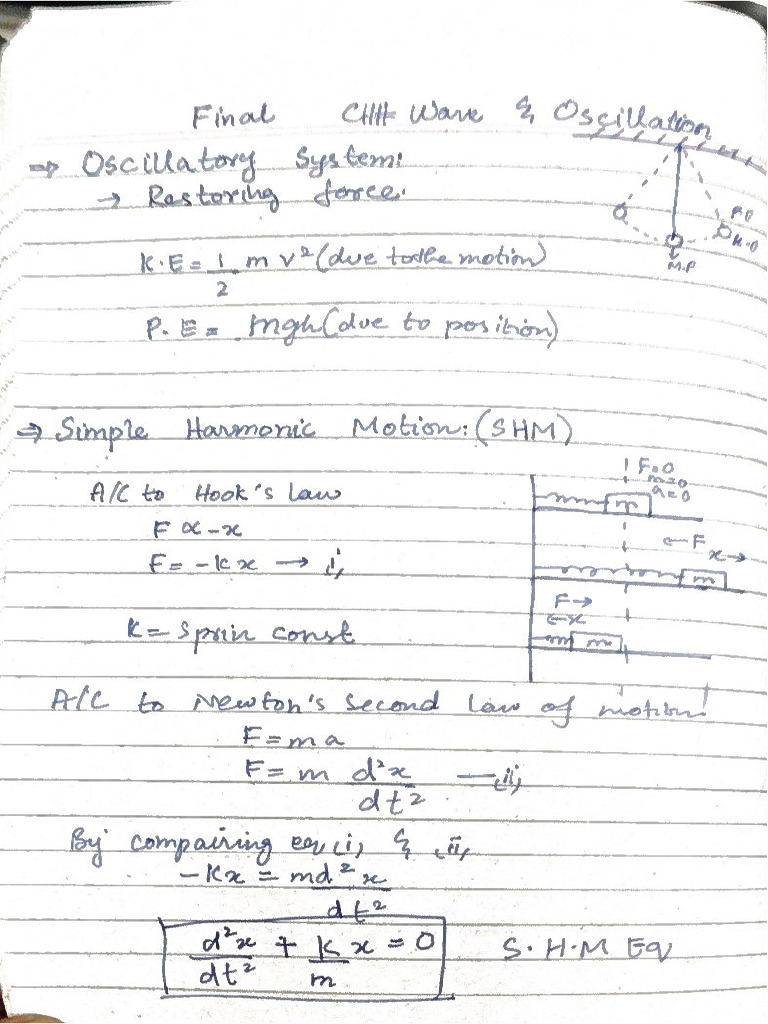 Final CH# Wave & Oscillation
⇒ Oscillatory System:
→ Restoring force.
M.P
K.E = 1/2 m v² (due to the motion)
P.E = mgh (due to position)
⇒ Simple Harmonic Motion: (SHM)
F=0
a=0
m
A/C to Hook's law
F ∝ -x
F = -kx → i,
← F
x →
m
F →
← x
m
K = Sprin const
A/C to Newton's Second law of motion
F = ma
F = m d²x/dt² — ii,
By compairing eq (i) & ii,
-Kx = md²x/dt²
d²x/dt² + K/m x = 0 S.H.M Eq